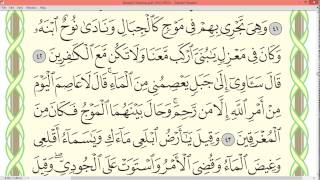 ٤١ وَهِىَ تَجْرِى بِهِمْ فِى مَوْجٍ كَٱلْجِبَالِ وَنَادَىٰ نُوحٌ ٱبْنَهُۥ
وَكَانَ فِى مَعْزِلٍ يَٰبُنَىَّ ٱرْكَب مَّعَنَا وَلَا تَكُن مَّعَ ٱلْكَٰفِرِينَ ٤٢
قَالَ سَـَٔاوِىٓ إِلَىٰ جَبَلٍ يَعْصِمُنِى مِنَ ٱلْمَآءِ ۚ قَالَ لَا عَاصِمَ ٱلْيَوْمَ
مِنْ أَمْرِ ٱللَّهِ إِلَّا مَن رَّحِمَ ۚ وَحَالَ بَيْنَهُمَا ٱلْمَوْجُ فَكَانَ مِنَ
ٱلْمُغْرَقِينَ ٤٣ وَقِيلَ يَٰٓأَرْضُ ٱبْلَعِى مَآءَكِ وَيَٰسَمَآءُ أَقْلِعِى
وَغِيضَ ٱلْمَآءُ وَقُضِىَ ٱلْأَمْرُ وَٱسْتَوَتْ عَلَى ٱلْجُودِىِّ ۖ وَقِيلَ